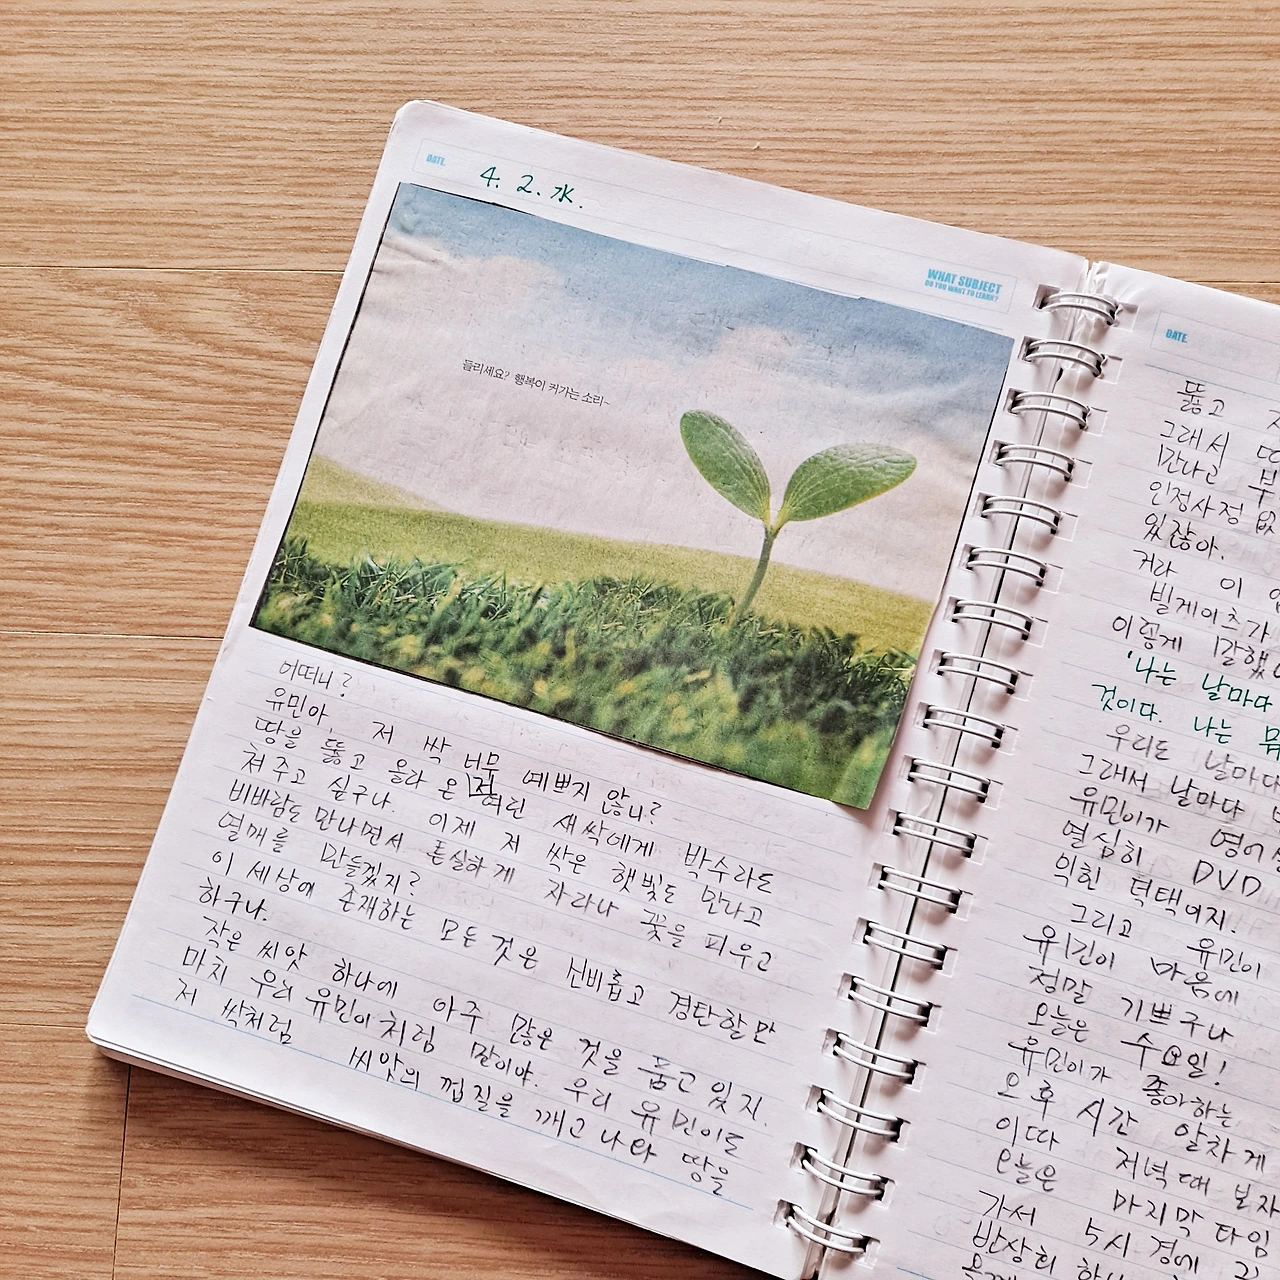 DATE.
4. 2. 水.
WHAT SUBJECT
DO YOU WANT TO LEARN?
들리세요? 행복이 커가는 소리~
어떠니?
유민아, 저 싹 너무 예쁘지 않니?
땅을 뚫고 올라 온 저 여린 새싹에게 박수라도
쳐주고 싶구나. 이제 저 싹은 햇빛도 만나고
비바람도 만나면서 튼실하게 자라나 꽃을 피우고
열매를 만들겠지?
이 세상에 존재하는 모든 것은 신비롭고 경탄할 만
하구나.
작은 씨앗 하나에 아주 많은 것을 품고 있지.
마치 우리 유민이처럼 말이야. 우리 유민이도
저 싹처럼 씨앗의 껍질을 깨고 나와 땅을
DATE.
뚫고
그래서
만나고
인정사정 없
있잖아.
커라 이
빌게이츠가
이렇게 말했
'나는 날마다
것이다. 나는
우리도 날마다
그래서 날마다
유민이가 영어
열심히 DVD
익힌 덕택이지.
그리고 유민이
유민이 마음에
정말 기쁘구나
오늘은 수요일!
유민이가 좋아하는
오후 시간 알차게
이따 저녁때 보자
오늘은 마지막 타임
가서 5시경에
반상회